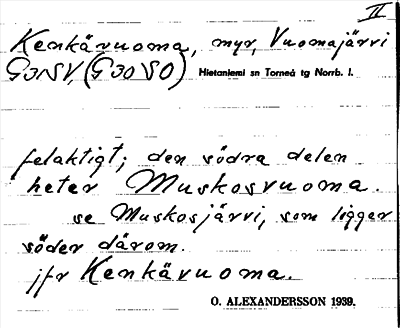 II
Kenkävuoma, myr, Vuomajärvi
Hietaniemi sn Torneå tg Norrb. l.
felaktigt; den södra delen
heter Muskosvuoma.
se Muskosjärvi, som ligger
söder därom.
jfr Kenkävuoma.
O. ALEXANDERSSON 1939.